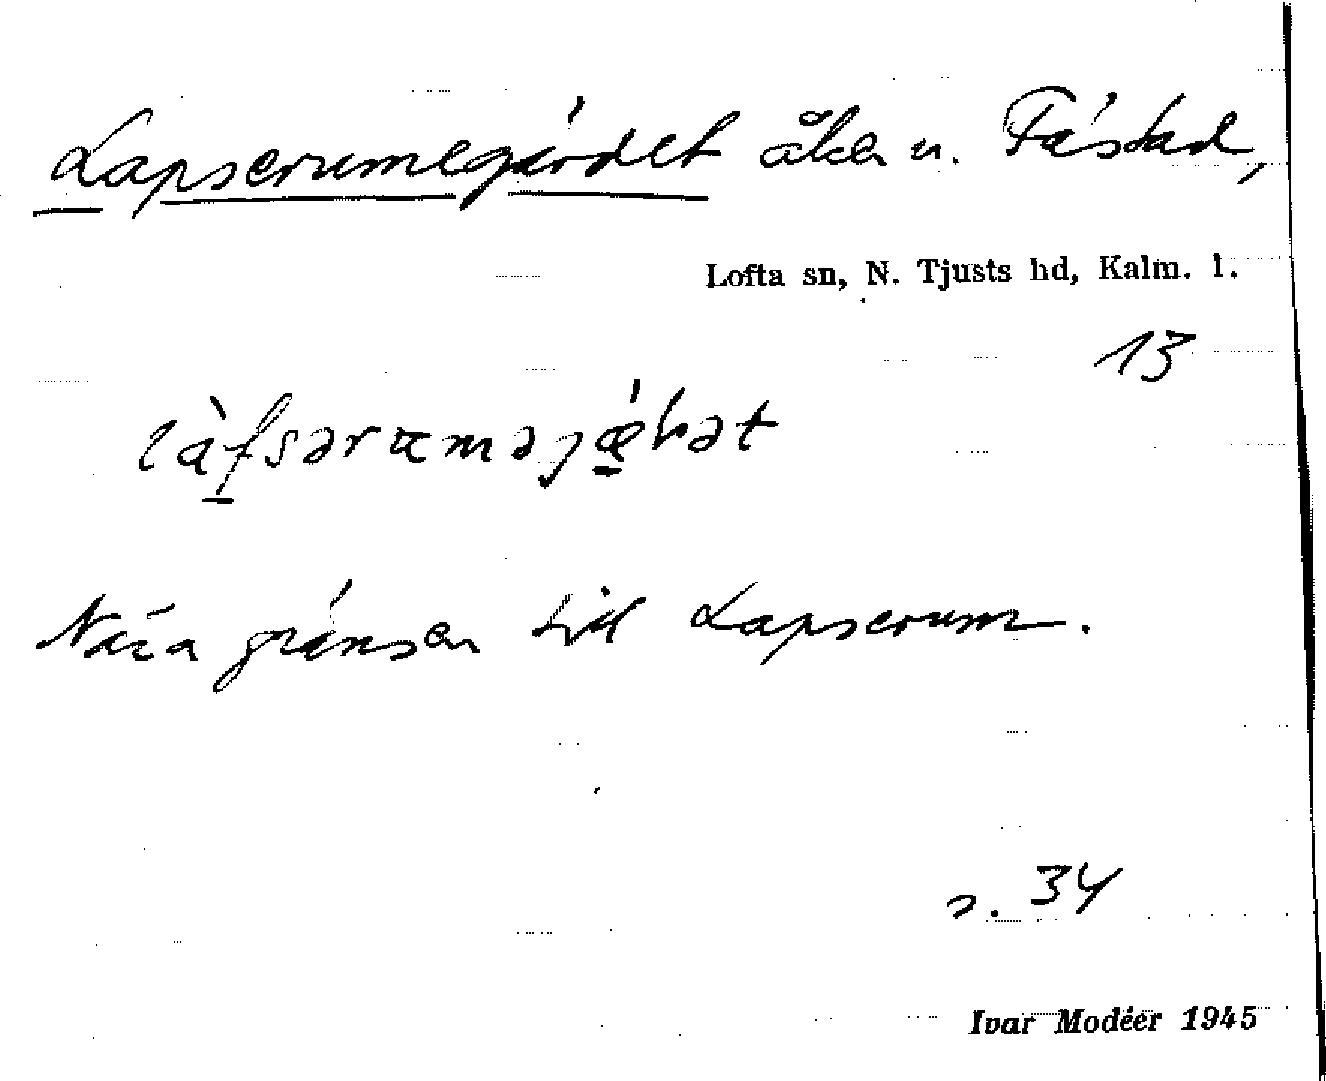 Lapserumegärdet åker u. Fästad,
Lofta sn, N. Tjusts hd, Kalm. l.
13
Nära gränsen till Lapserum.
s. 34
Ivar Modéer 1945